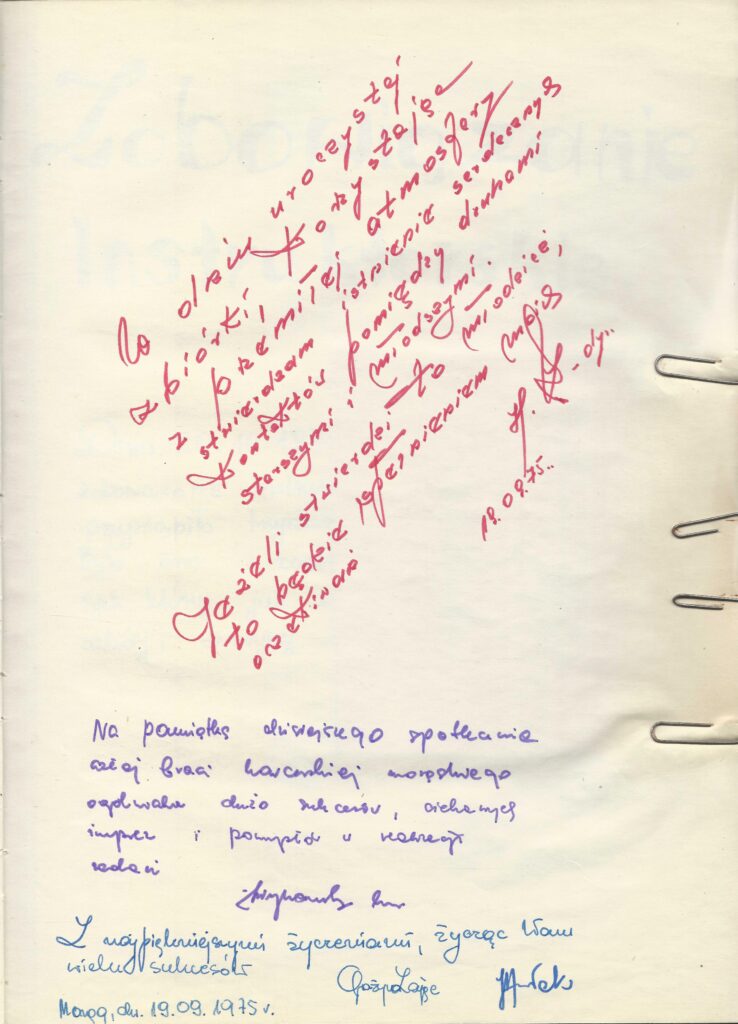 W dniu uroczystej
zbiórki, korzystając
z przemiłej atmosfery
stwierdzam istnienie serdecznych
kontaktów pomiędzy druhami
starszymi i młodszymi.
Jeżeli stwierdzi to młodzież,
to będzie spełnieniem moich
oczekiwań
19.09.75..
Na pamiątkę dzisiejszego spotkania
całej braci harcerskiej morąskiego
dużo sukcesów, ciekawych
imprez i pomysłów w realizacji
zadań
Z najpiękniejszymi życzeniami, życząc Wam
wielu sukcesów
Morąg, dn. 19.09.1975r.